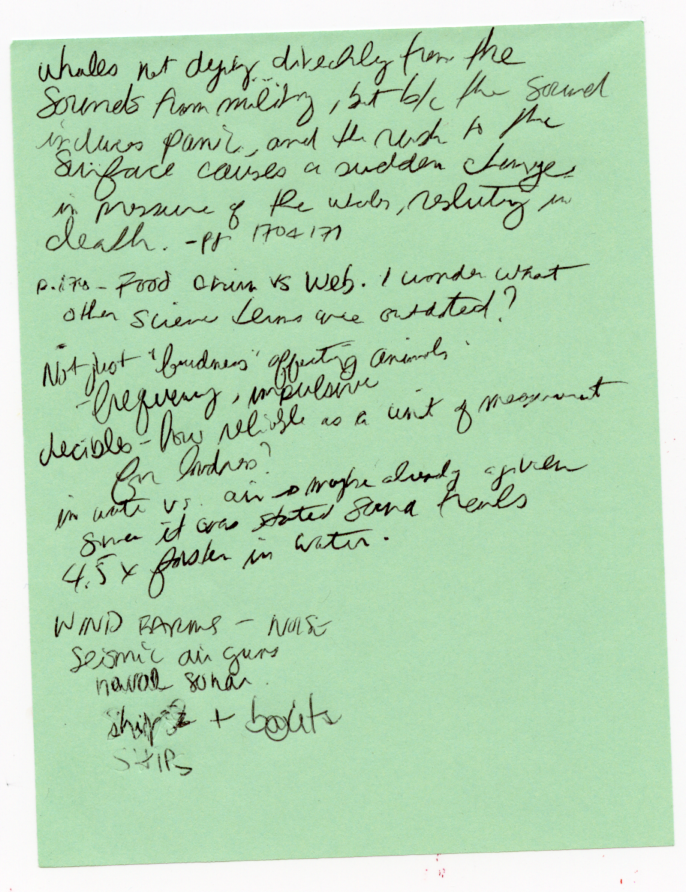 whales not dying directly from the
Sounds from military, but b/c the sound
induces panic, and the rush to the
Surface causes a sudden change
in pressure of the whales, resluting in
death. - pg 170 & 171
p. 178 - Food chain vs Web. I wonder what
other science terms are outdated?
Not just "loudness" affecting animals
- frequency, impulsive
decibles - how reliable as a unit of measurement
for loudness?
in water vs. air → maybe already a given
since it was stated sound travels
4.5x faster in water.
WIND FARMS - NOISE
Seismic air guns
naval sonar
ships + boats
SHIPS